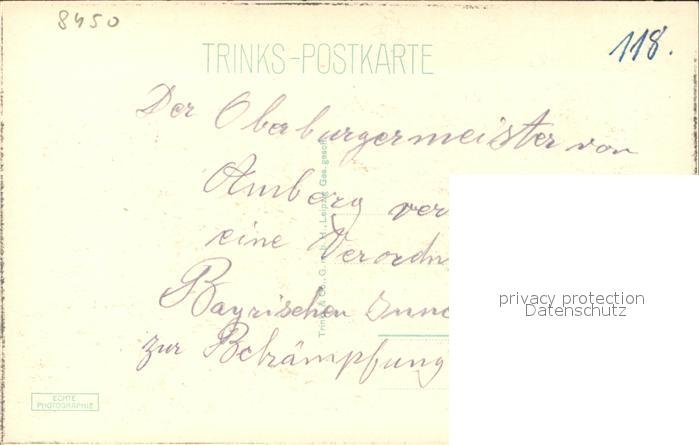 8450
118.
TRINKS-POSTKARTE
Der Oberburgermeister von
Amberg ver
eine Verordn
Bayrischen Inne
zur Bekämpfung
Trinks & Co., G. m. b. H., Leipzig Ges. gesch.
privacy protection
Datenschutz
ECHTE
PHOTOGRAPHIE